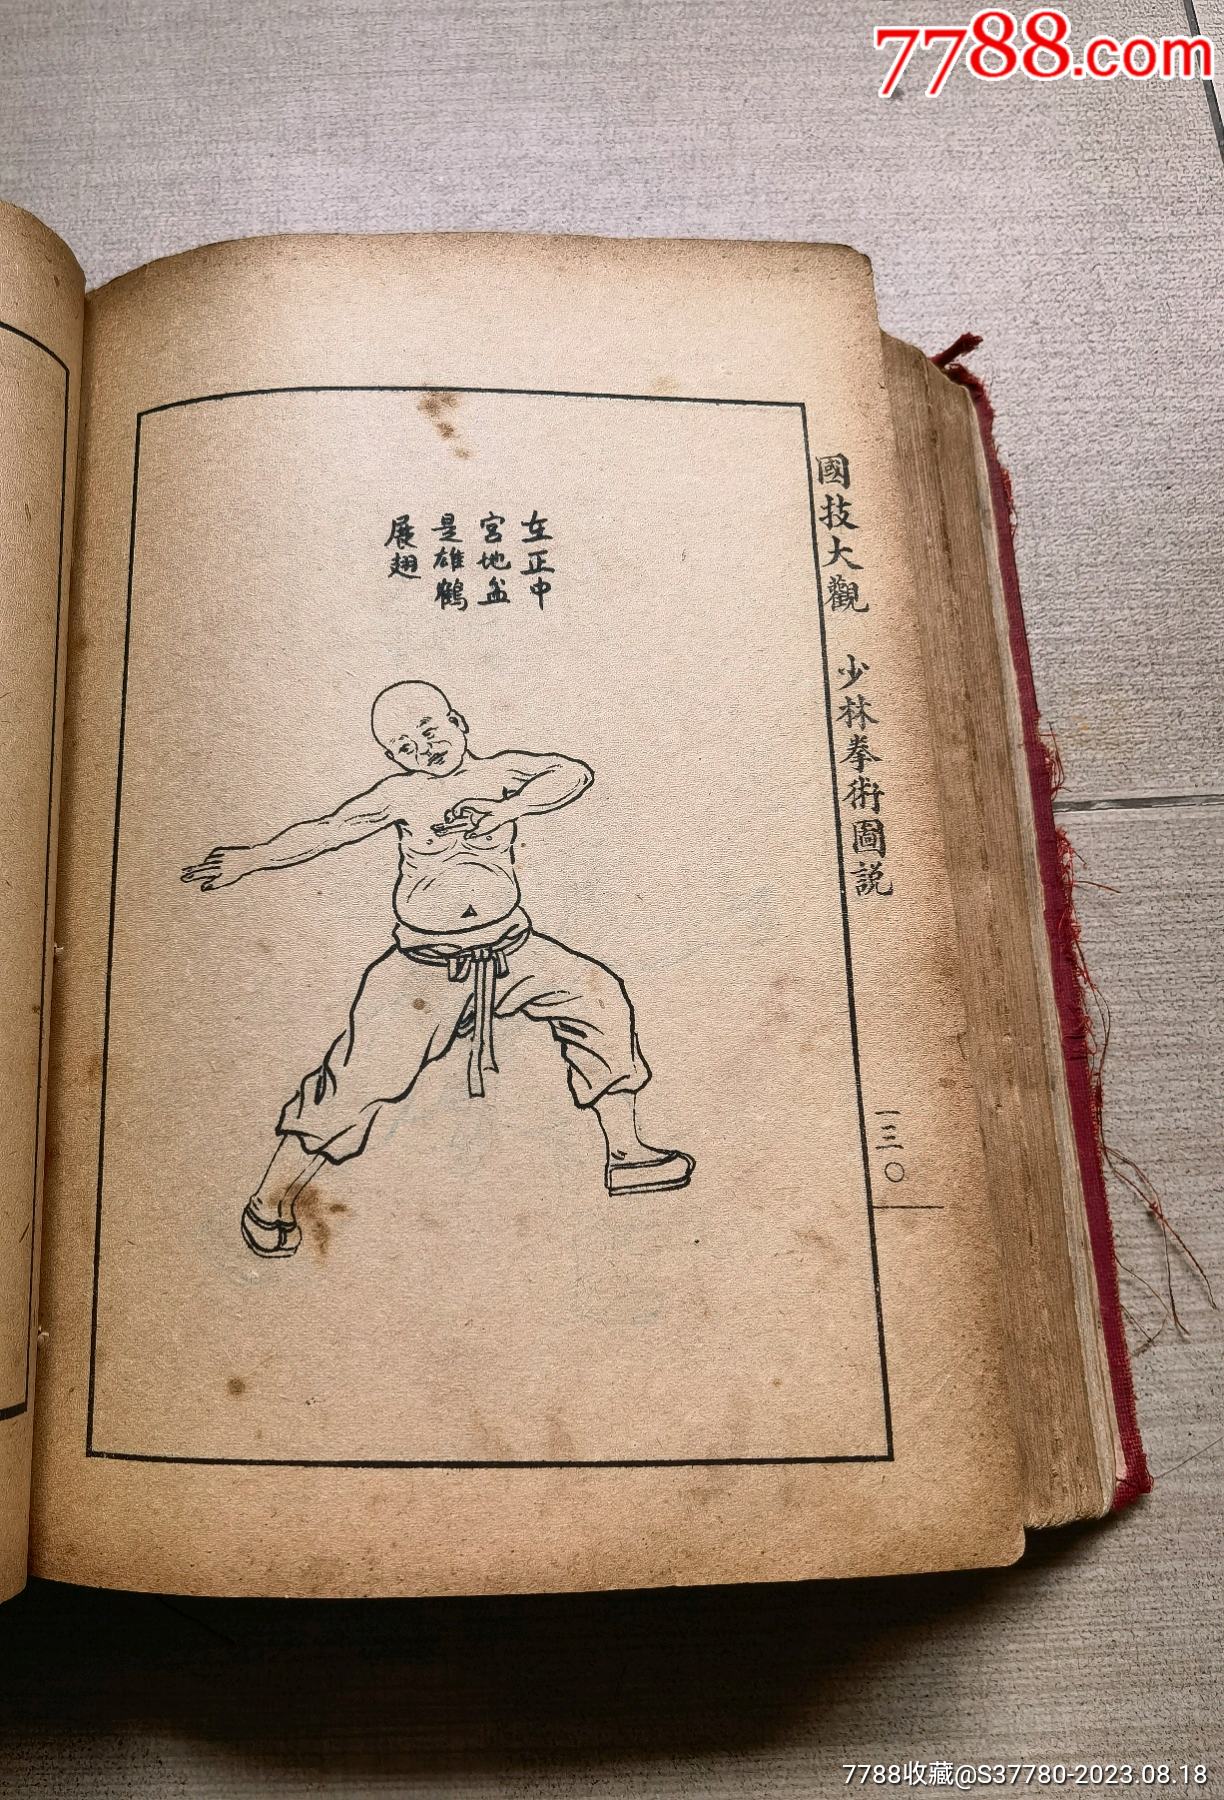 7788.com
國技大觀 少林拳術圖説
一三〇
在正中
宮地盆
是雄鶴
展翅
7788收藏@S37780-2023.08.18